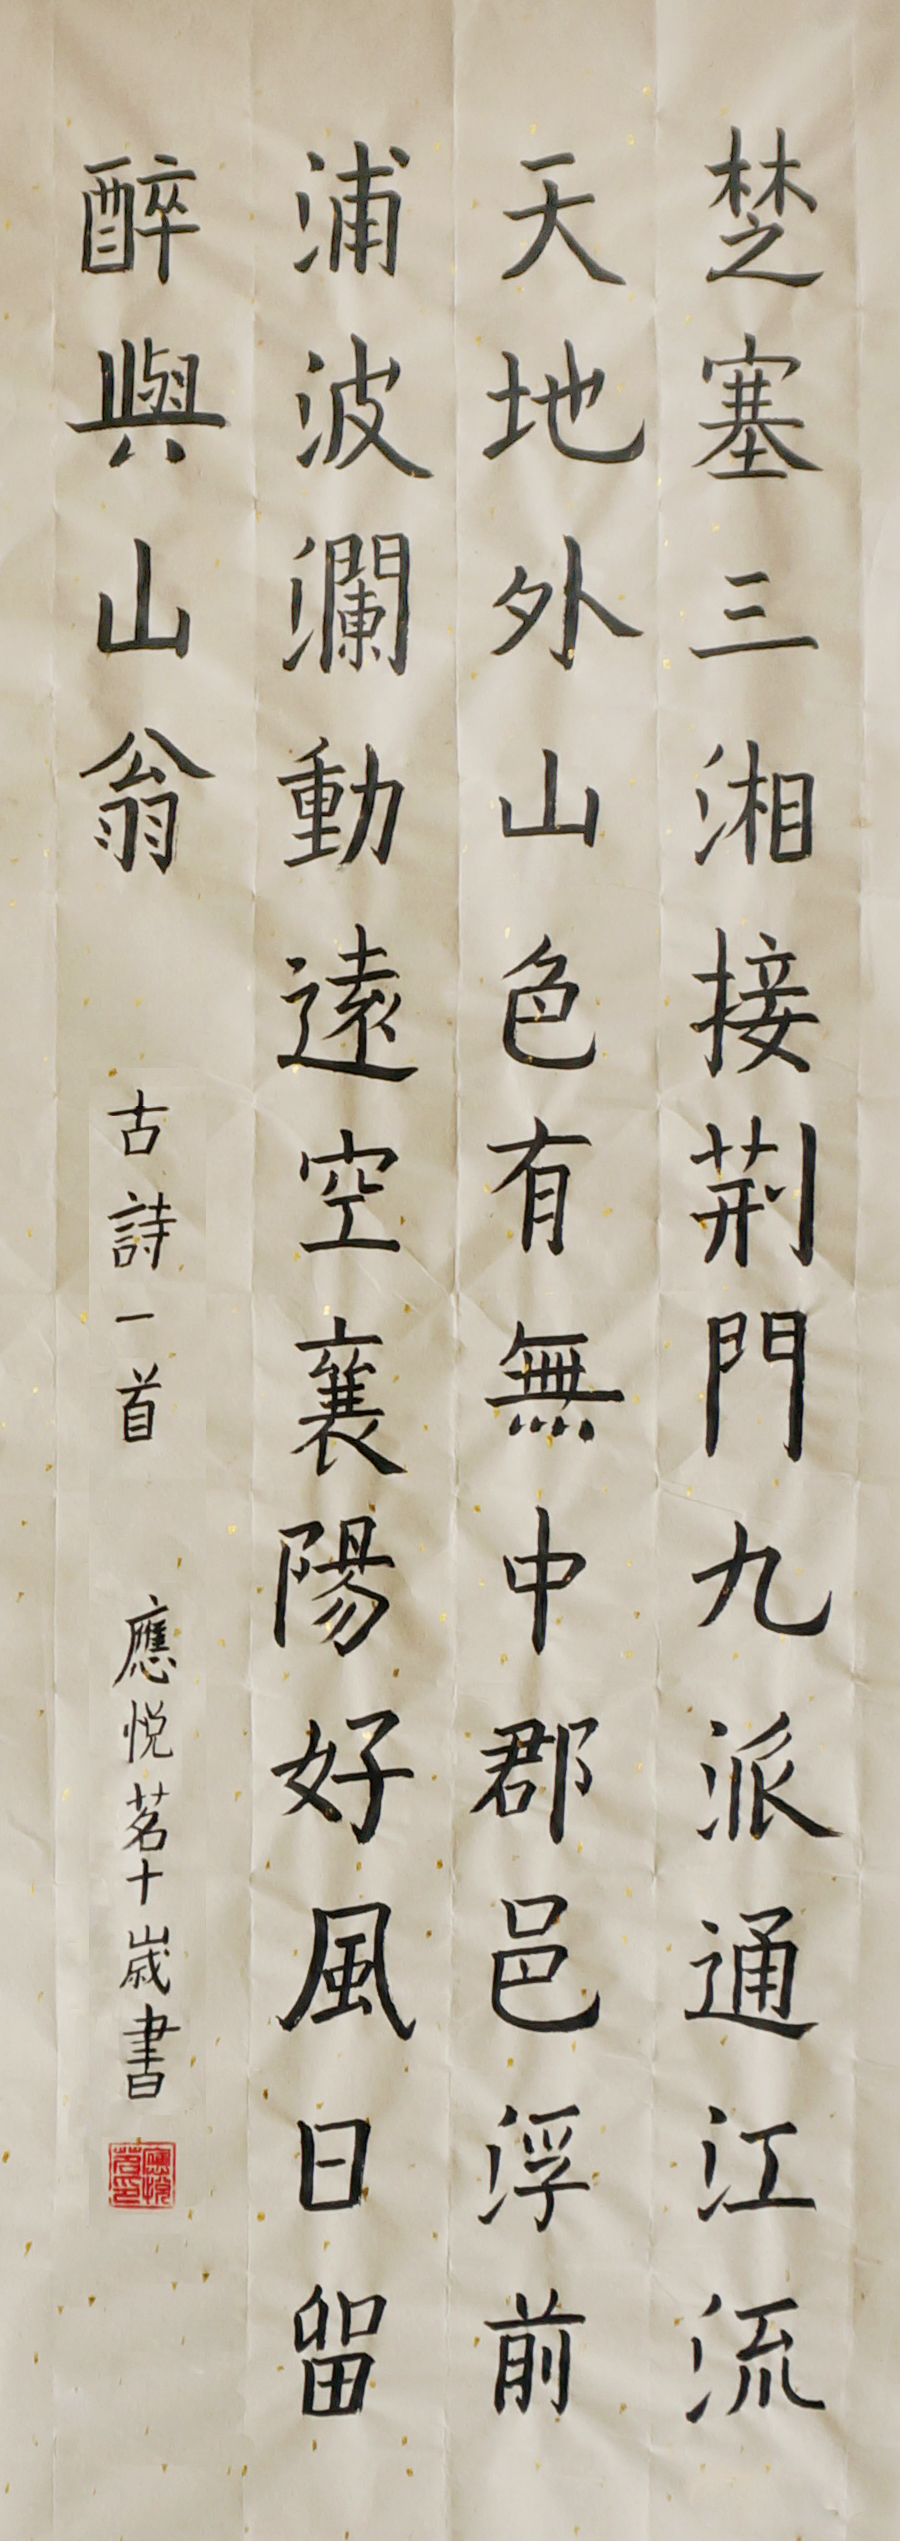 楚塞三湘接荆門九派通江流
天地外山色有無中郡邑浮前
浦波瀾動遠空襄陽好風日留
醉與山翁
古詩一首
應悅茗十歲書
應悅茗印